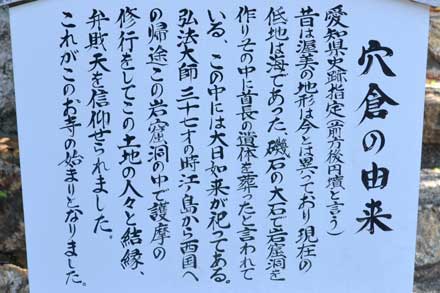 穴倉の由来
愛知県史跡指定(前方後円墳と言う)
昔は渥美の地形は今とは異っており現在の
低地は海であった、磯石の大石で岩窟洞を
作りその中に首長の遺体を葬ったと言われて
いる、この中には大日如来が祀ってある。
弘法大師三十七才の時江ノ島から西国へ
の帰途この岩窟洞の中で護摩の
修行をしてこの土地の人々と結縁、
弁財天を信仰せられました。
これがこのお寺の始まりとなりました。